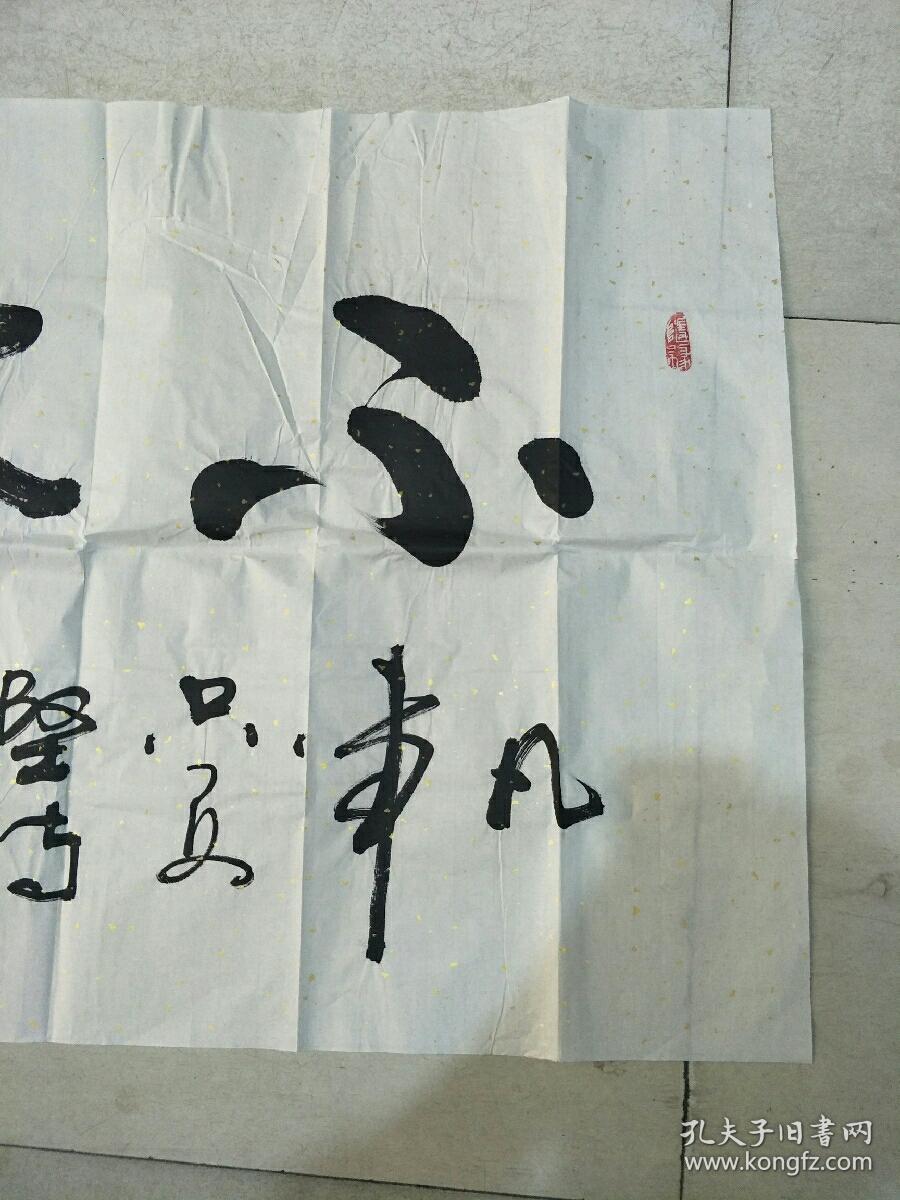 不
凡事只要堅守
孔夫子旧書网
www.kongfz.com